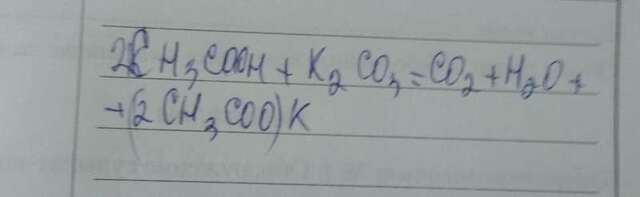 2CH₃COOH + K₂CO₃ = CO₂ + H₂O +
+(2CH₃COO)K